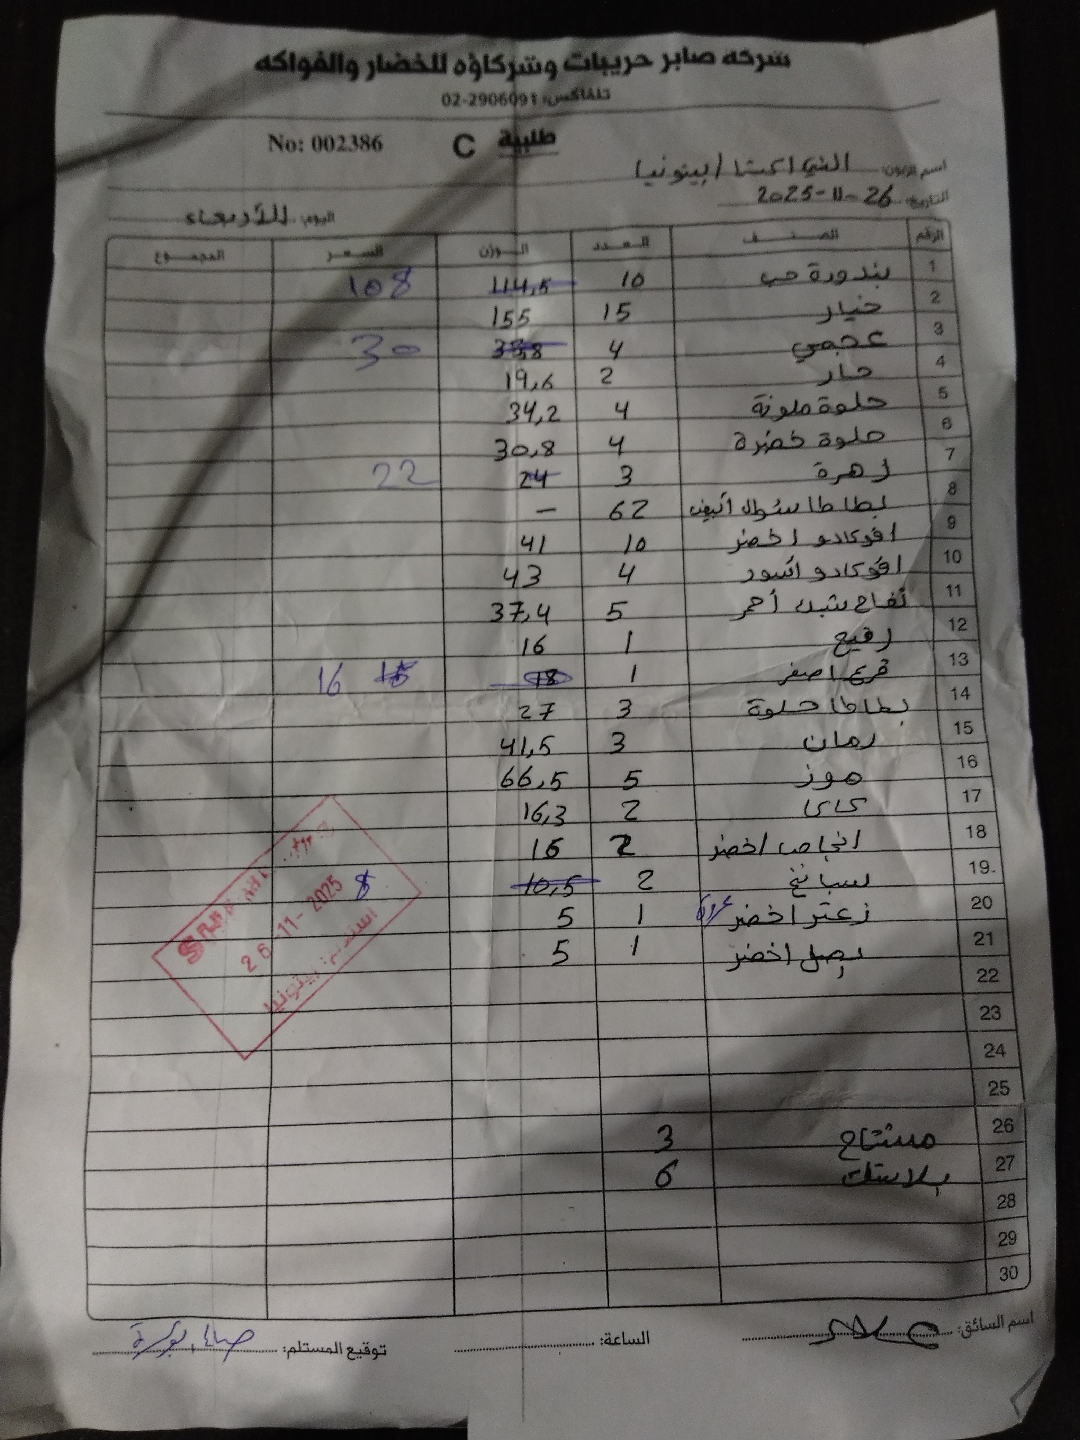 شركة صابر حريبات وشركاؤه للخضار والفواكه
تلفاكس: 02-2906091
No: 002386 C طلبية
اسم الزبون: بيتونيا
التاريخ: 26-11-2025
اليوم: الأربعاء
الرقم الصنف العدد الوزن السعر المجموع
1 بندورة حب 10 114,5 108
2 خيار 15 155
3 عجمي 4 30
4 حار 2 19,6
5 حلوة ملونة 4 34,2
6 حلوة خضرة 4 30,8
7 زهرة 3 24 22
8 بطاطا 62 –
9 افوكادو اخضر 10 41
10 افوكادو أسود 4 43
11 تفاح أحمر 5 37,4
12 1 16
13 قرع اصفر 1 18 16
14 بطاطا حلوة 3 27
15 رمان 3 41,5
16 موز 5 66,5
17 كاكا 2 16,3
18 انجاص اخضر 2 16
19 سبانخ 2 10,5 8
20 زعتر اخضر 1 5
21 بصل اخضر 1 5
22
23
24
25
26 مشتاح 3
27 بلاستك 6
28
29
30
26-11-2025
بيتونيا
اسم السائق:
الساعة:
توقيع المستلم: